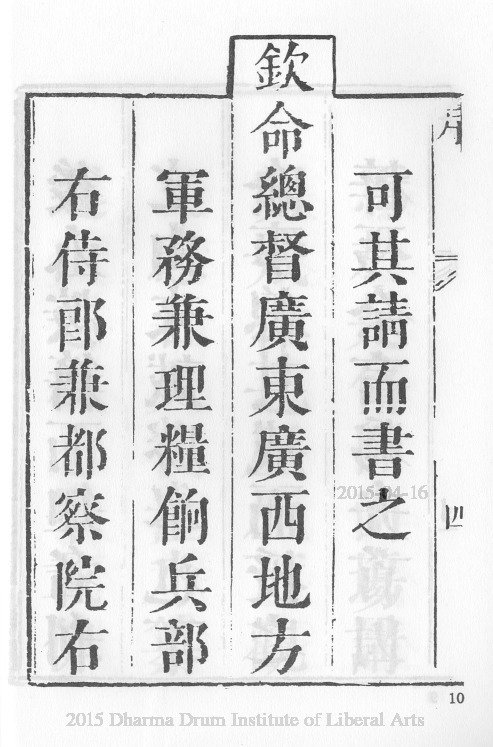 序
四
可其請而書之
欽命總督廣東廣西地方
軍務兼理糧餉兵部
右侍郎兼都察院右
2015-04-16
10
2015 Dharma Drum Institute of Liberal Arts